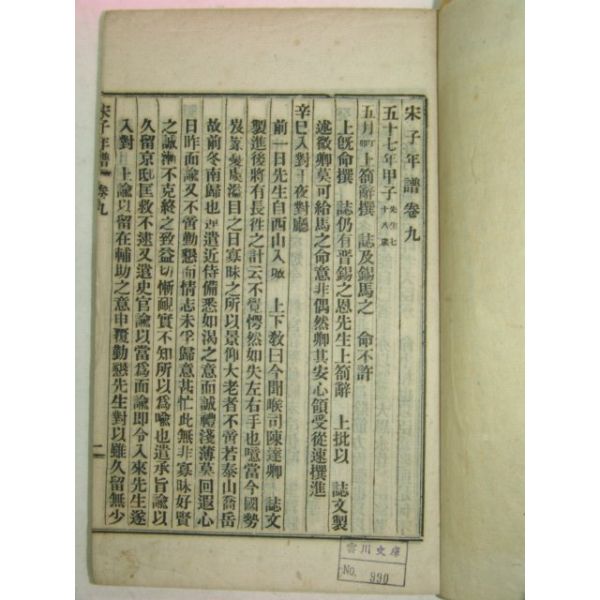 宋子年譜卷九
五十七年甲子先生七十八歲
五月上箚辭撰 誌及錫馬之 命不許
上旣命撰 誌仍有晋錫之恩先生上箚辭 上批以 誌文製
述微卿莫可給馬之命意非偶然卿其安心領受從速撰進
辛巳入對 夜對廳
前一日先生自西山入 上下敎曰今聞喉司陳達卿 誌文
製進後將有長徃之計云不覺愕然如失左右手也噫當今國勢
岌 溢目之日寡昧之所以景仰大老者不啻若泰山喬岳
故前冬南歸也 遣近侍備悉如渴之意而誠禮淺薄莫回遐心
日昨面諭又不啻勤懇而情志未孚歸意甚忙此無非寡昧好賢
之誠 不克終之致益切慚靦實不知所以爲喩也遣承旨諭以
久留京邸匡救不逮又遣史官諭以當爲面諭卽令入來先生遂
入對 上諭以留在輔助之意申覆勤懇先生對以雖久留無少
宋子年譜 卷九
二
雲川文庫
No. 990